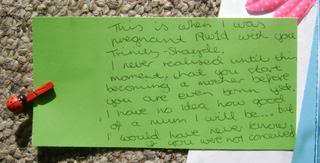 This is when I was
pregnant with you
Trinity-Shayde.
I never realised until this
moment, that you start
becoming a mother before
you are even born yet.
I have no Idea how good
of a mum I will be... but
I would have never known
if you were not conceived